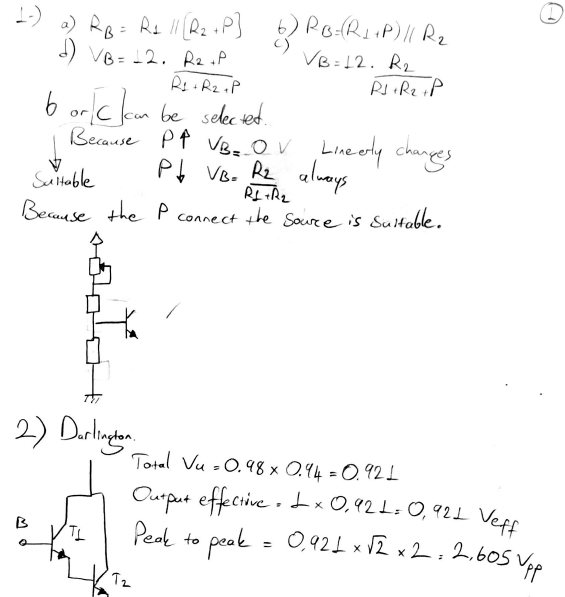 ①
1-) a) RB = R1 // [R2 + P] b) RB = (R1 + P) // R2
d) VB = 12 . R2 + P / R1 + R2 + P c) VB = 12 . R2 / R1 + R2 + P
b or [C] can be selected.
Because P↑ VB = 0 V Lineerly changes
Suitable P↓ VB = R2 / R1 + R2 always
Because the P connect the source is suitable.
2) Darlington.
Total Vu = 0.98 x 0.94 = 0.921
Output effective = 1 x 0,921 = 0,921 Veff
Peak to peak = 0,921 x √2 x 2 = 2,605 Vpp
B
T1
T2